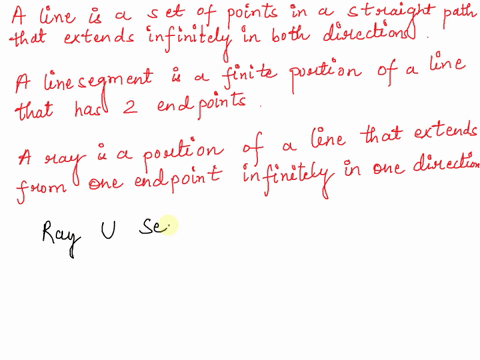 A line is a set of points in a straight path
that extends infinitely in both direction.
A line segment is a finite position of a line
that has 2 endpoints.
A ray is a position of a line that extends
from one endpoint infinitely in one direction
Ray U Se